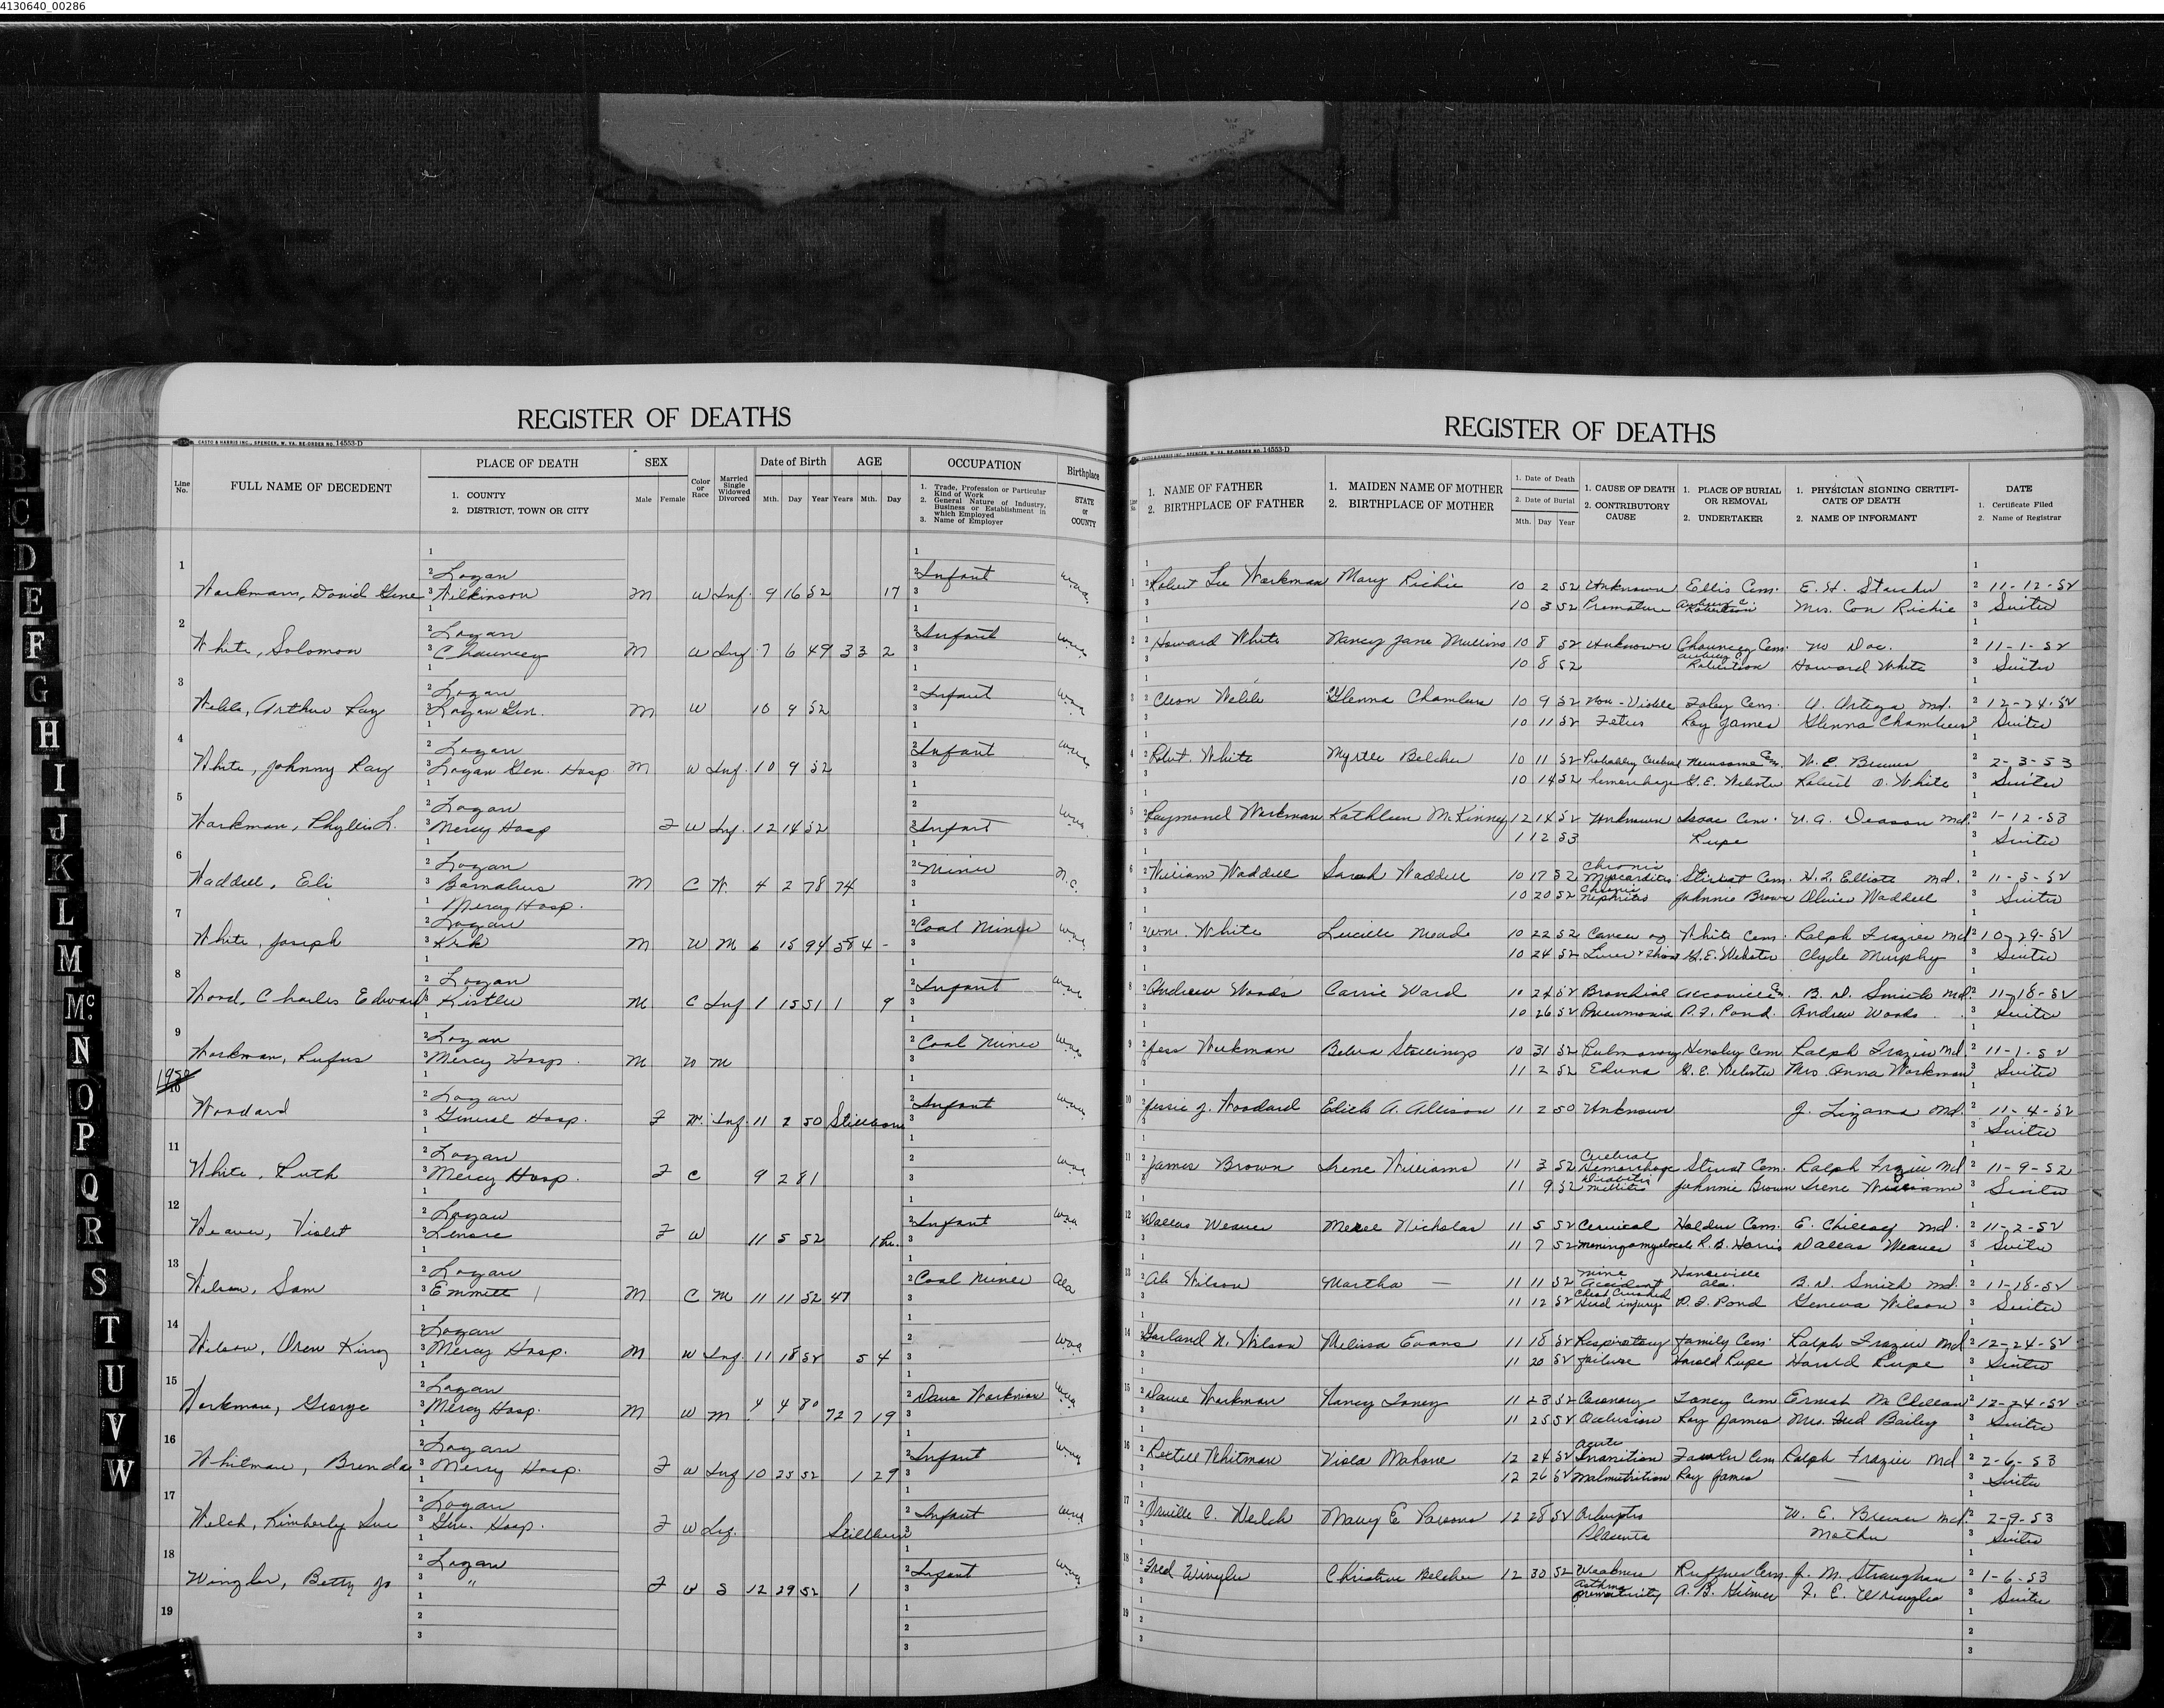 4130640_00286
REGISTER OF DEATHS
CASTO & HARRIS INC., SPENCER, W. VA. RE-ORDER NO. 14553-D
Line No.
FULL NAME OF DECEDENT
PLACE OF DEATH
1. COUNTY
2. DISTRICT, TOWN OR CITY
SEX
Male Female
Color or Race
Married Single Widowed Divorced
Date of Birth
Mth. Day Year
AGE
Years Mth. Day
OCCUPATION
1. Trade, Profession or Particular Kind of Work
2. General Nature of Industry, Business or Establishment in which Employed
3. Name of Employer
Birthplace
STATE or COUNTY
1 Workman, David Gene Logan Wilkinson M W Inf. 9 16 52 17 Infant
2 White, Solomon Logan Chauncey M W Inf 7 6 49 3 3 2 Infant
3 Webb, Arthur Ray Logan Logan Gen. M W 10 9 52 Infant
4 White, Johnny Ray Logan Logan Gen. Hosp M W Inf. 10 9 52 Infant
5 Workman, Phyllis L. Logan Mercy Hosp F W Inf. 12 14 52 Infant
6 Waddell, Eli Logan Barnabus M C W. 4 2 78 74 Miner N.C.
7 White, Joseph Mercy Hosp. Logan Kirk M W M 6 15 94 58 4 - Coal Miner
8 Wood, Charles Edward Logan Kistler M C Inf 1 15 51 1 9 Infant
9 Workman, Rufus Logan Mercy Hosp. M W M Coal Miner
1950
10 Woodard Logan General Hosp. F W. Inf. 11 2 50 Stillborn Infant
11 White, Ruth Logan Mercy Hosp. F C 9 2 81
12 Weaver, Violet Logan Lenore F W 11 5 52 1 hr. Infant
13 Wilson, Sam Logan Emmett M C M 11 11 52 47 Coal Miner Ala
14 Wilson, Oren King Logan Mercy Hosp. M W Inf. 11 18 52 5 4
15 Workman, George Logan Mercy Hosp. M W M 4 4 80 72 7 19 Dave Workman
16 Whitman, Brenda Logan Mercy Hosp. F W Inf 10 25 52 1 29 Infant
17 Welch, Kimberly Sue Logan Gen. Hosp. F W Inf. Stillborn Infant
18 Wingler, Betty Jo Logan " F W S 12 29 52 1 Infant
19
REGISTER OF DEATHS
CASTO & HARRIS INC., SPENCER, W. VA. RE-ORDER NO. 14553-D
1. NAME OF FATHER
2. BIRTHPLACE OF FATHER
1. MAIDEN NAME OF MOTHER
2. BIRTHPLACE OF MOTHER
1. Date of Death
2. Date of Burial
Mth. Day Year
1. CAUSE OF DEATH
2. CONTRIBUTORY CAUSE
1. PLACE OF BURIAL OR REMOVAL
2. UNDERTAKER
1. PHYSICIAN SIGNING CERTIFICATE OF DEATH
2. NAME OF INFORMANT
DATE
1. Certificate Filed
2. Name of Registrar
1 Robert Lee Workman Mary Richie 10 2 52 Unknown Ellis Cem. E. H. Starcher 11-12-52
10 3 52 Premature Robertson Mrs. Con Richie Suiter
2 Howard White Nancy Jane Mullins 10 8 52 Unknown Chauncey Cem. No Doc. 11-1-52
10 8 52 Robertson Howard White Suiter
3 Cleon Webb Glenna Chambers 10 9 52 Non-Viable Foley Cem. A. Ortega Md. 12-24-52
10 11 52 Fetus Ray James Glenna Chambers Suiter
4 Robt. White Myrtle Belcher 10 11 52 Probably Cerebral Newsome Cem. W. E. Brewer 2-3-53
10 14 52 hemorrhage G. E. Webster Robert O. White Suiter
5 Raymond Workman Kathleen McKinney 12 14 52 Unknown Isaac Cem. U. G. Deason Md. 1-12-53
1 12 53 Rupe Suiter
6 William Waddell Sarah Waddell 10 17 52 Chronic Myocarditis Stewart Cem. H. L. Elliott Md. 11-5-52
10 20 52 Chronic Nephritis Johnnie Brown Olivia Waddell Suiter
7 Wm. White Lucille Meade 10 22 52 Cancer of White Cem. Ralph Frazier Md 10-29-52
10 24 52 Liver & G. E. Webster Clyde Murphy Suiter
8 Andrew Woods Carrie Ward 10 24 52 Bronchial Accoville Cem B. D. Smith Md. 11-18-52
10 26 52 Pneumonia P. F. Pond Andrew Woods Suiter
9 Jess Workman Belva Stallings 10 31 52 Pulmonary Hensley Cem Ralph Frazier Md. 11-1-52
11 2 52 Edema G. E. Webster Mrs. Anna Workman Suiter
10 Jessie J. Woodard Edith A. Allison 11 2 50 Unknown J. Lizama Md. 11-4-52
Suiter
11 James Brown Irene Williams 11 3 52 Cerebral Hemorrhage Stewart Cem. Ralph Frazier Md 11-9-52
11 9 52 Diabetis Mellitis Johnnie Brown Irene Williams Suiter
12 Dallas Weaver Merle Nicholas 11 5 52 Cervical Holden Cem. E. Chillag Md. 11-2-52
11 7 52 Meningomyelocele R. B. Harris Dallas Weaver Suiter
13 Ab Wilson Martha — 11 11 52 Mine Accident Hanceville Ala. B. D. Smith Md. 11-18-52
11 12 52 Chest Crushed Head injury P. F. Pond Geneva Wilson Suiter
14 Garland N. Wilson Melissa Evans 11 18 52 Respiratory Family Cem. Ralph Frazier Md 12-24-52
11 20 52 failure Harold Rupe Harold Rupe Suiter
15 Dave Workman Nancy Toney 11 23 52 Coronary Toney Cem Ernest McClellan 12-24-52
11 25 52 Occlusion Ray James Mrs. Fred Bailey Suiter
16 Pertell Whitman Viola Mahone 12 24 52 Acute Inanition Fowler Cem Ralph Frazier Md 2-6-53
12 26 52 Malnutrition Ray James — Suiter
17 Orville C. Welch Mary E Parsons 12 28 52 Arbuptio W. E. Brewer Md. 2-9-53
Placenta Mother Suiter
18 Fred Wingler Christine Belcher 12 30 52 Weakness Ruffner Cem. J. M. Straughan 1-6-53
Asthma Prematurity A. B. Gilmer F. E. Wringler Suiter
19
B
C
D
E
F
G
H
I
J
K
L
M
Mc
N
O
P
Q
R
S
T
U
V
W
X
Y
Z